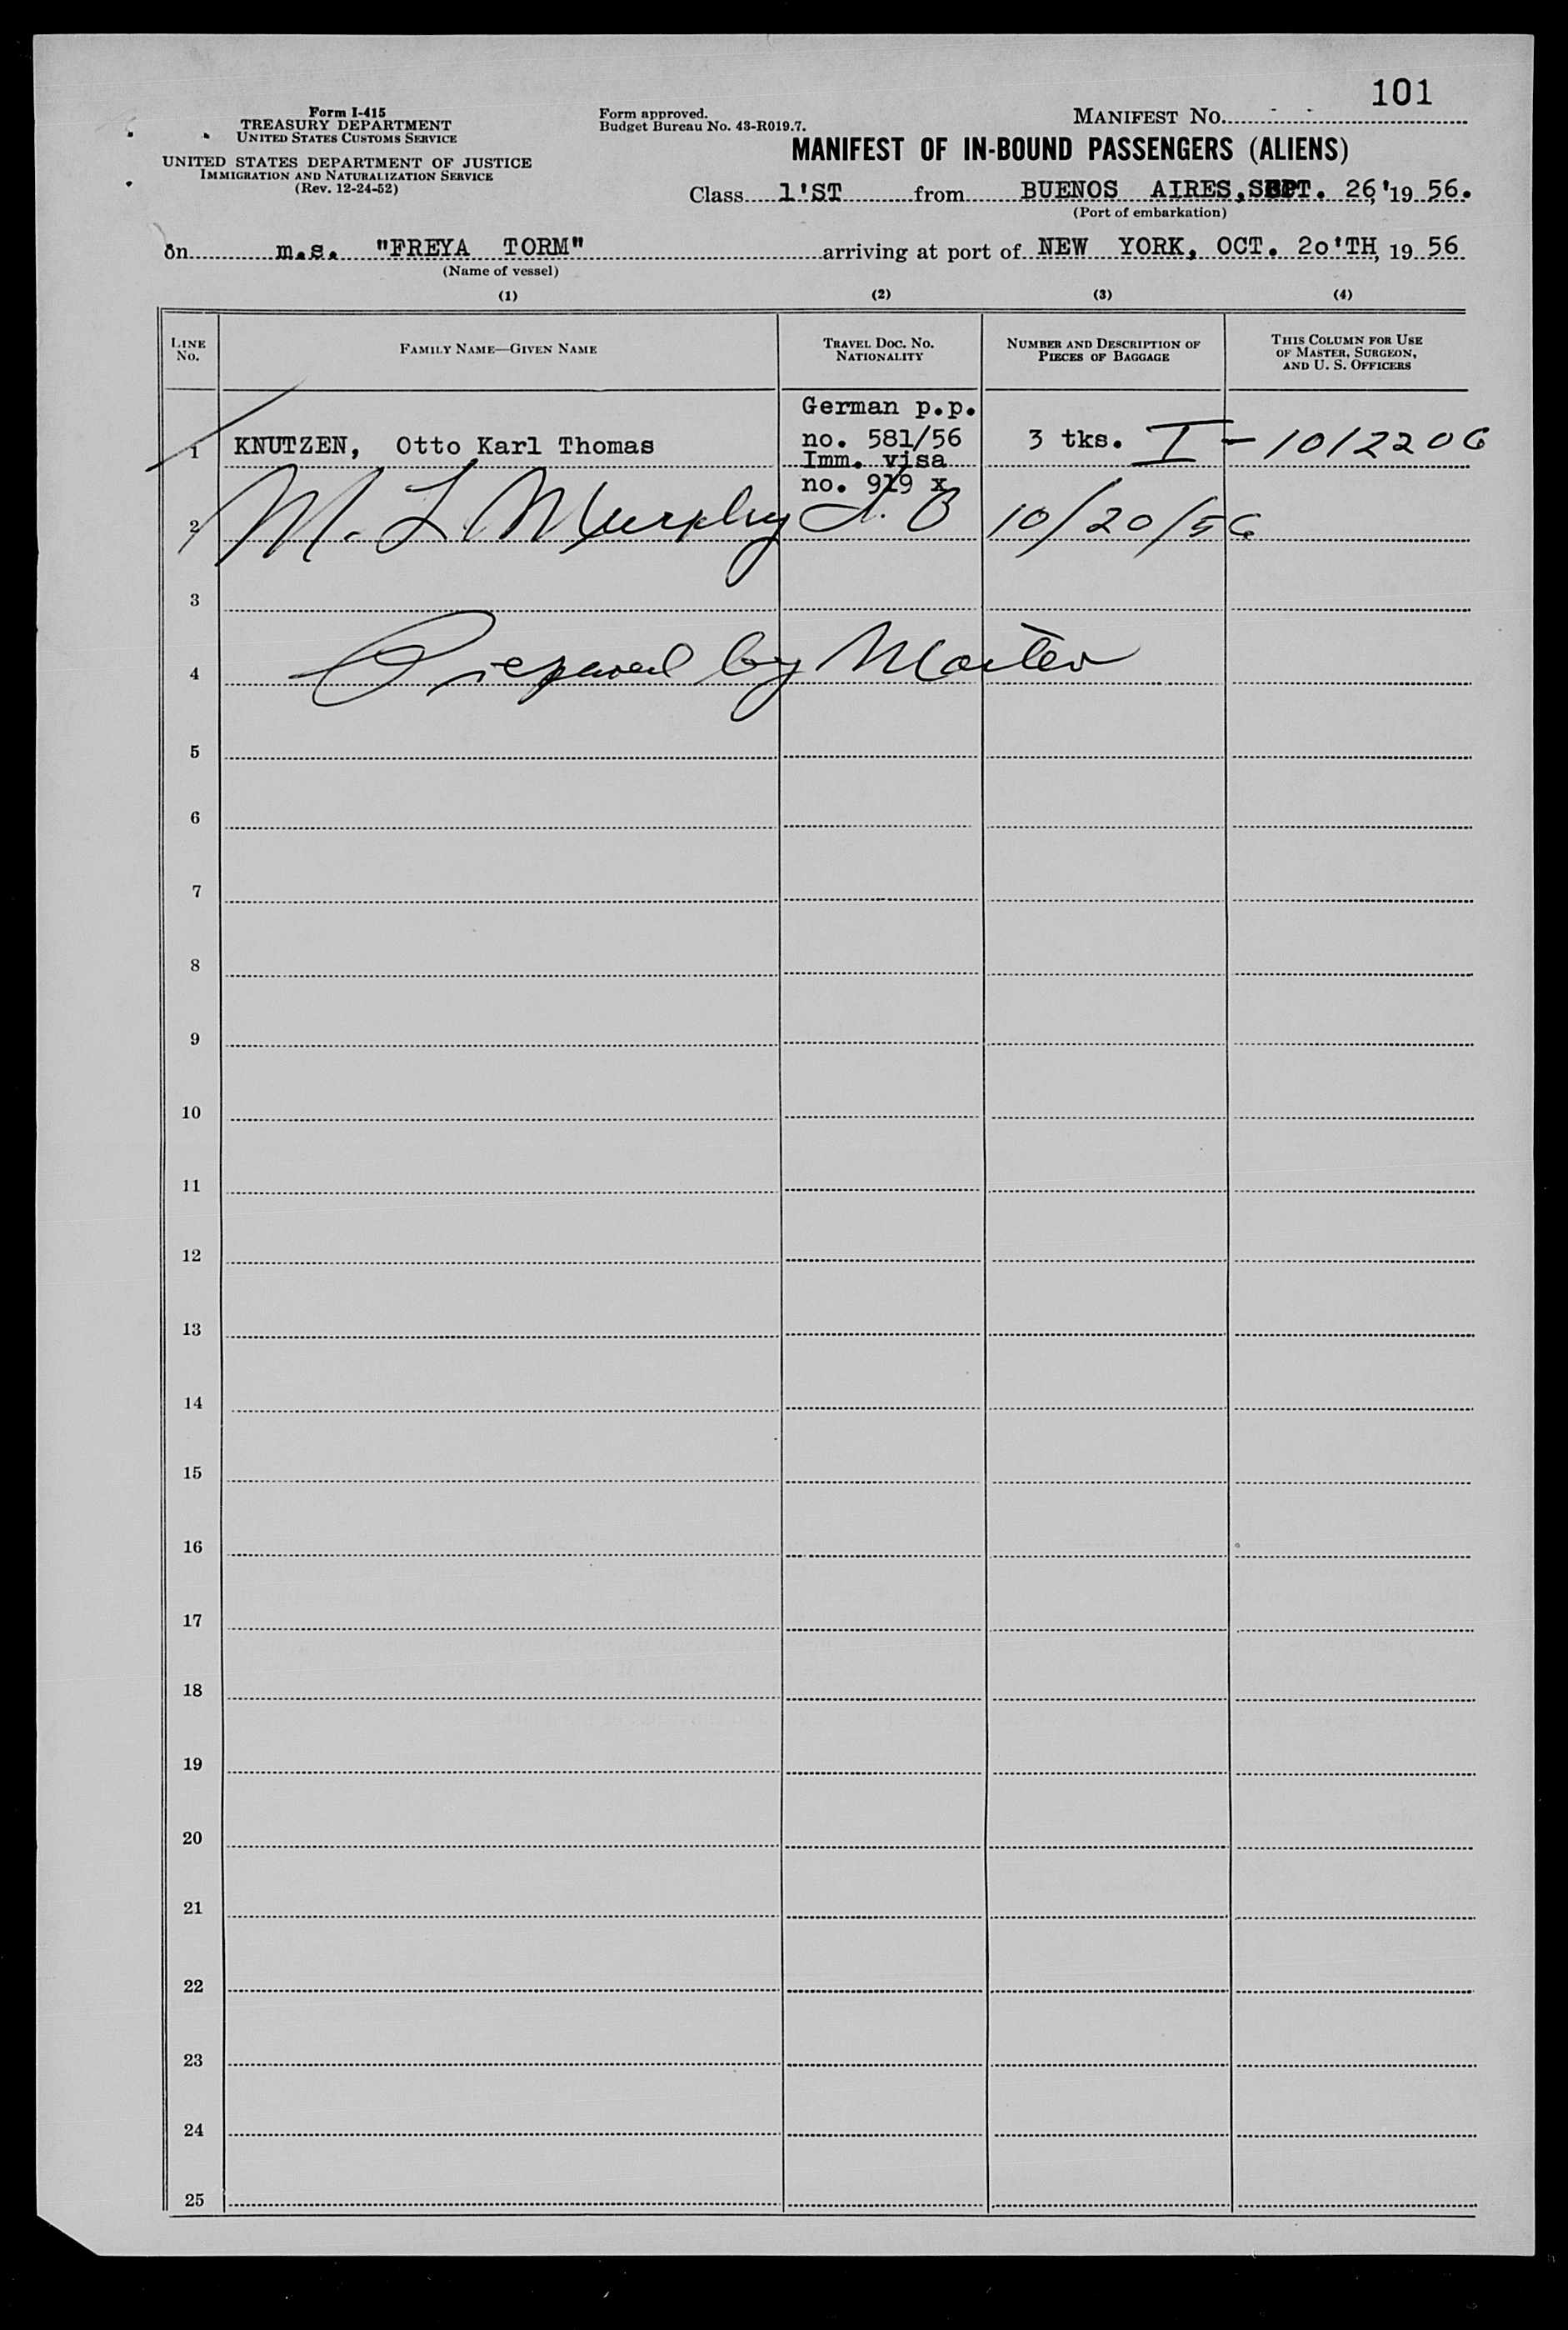 101
Form I-415
TREASURY DEPARTMENT
UNITED STATES CUSTOMS SERVICE
UNITED STATES DEPARTMENT OF JUSTICE
IMMIGRATION AND NATURALIZATION SERVICE
(Rev. 12-24-52)
Form approved.
Budget Bureau No. 43-R019.7.
MANIFEST NO.
MANIFEST OF IN-BOUND PASSENGERS (ALIENS)
Class 1'ST from BUENOS AIRES, SEPT. 26,'19 56.
(Port of embarkation)
on m.s. "FREYA TORM" arriving at port of NEW YORK, OCT. 2o'TH, 19 56
(Name of vessel)
(1) (2) (3) (4)
LINE NO.
FAMILY NAME—GIVEN NAME
TRAVEL DOC. NO. NATIONALITY
NUMBER AND DESCRIPTION OF PIECES OF BAGGAGE
THIS COLUMN FOR USE OF MASTER, SURGEON, AND U. S. OFFICERS
German p.p.
1 KNUTZEN, Otto Karl Thomas no. 581/56 3 tks. I - 1012206
Imm. visa
no. 919 x
2 M. L. Murphy I. B 10/20/56
3
4 Prepared by Master
5
6
7
8
9
10
11
12
13
14
15
16
17
18
19
20
21
22
23
24
25